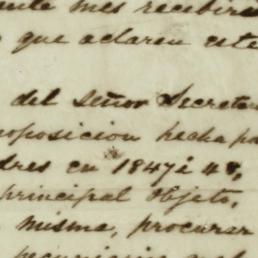 mes recibir
que aclaren este
del señor Secretar
oposicion hecha pa
dres en 1847 á 48,
principal objeto,
misma, procurar